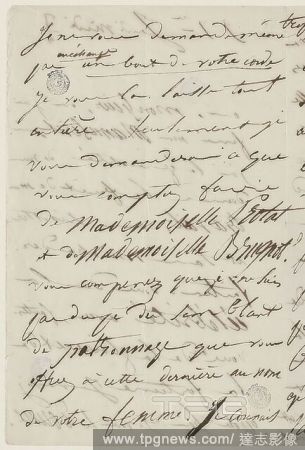 Je ne vous demande même
pas en échange un bout de votre corde
Je vous la laisse tout
entière seulement je
vous demanderai ce que
vous comptez faire
de Mademoiselle
et de Mademoiselle
vous comprenez que je ne suis
pas dupe du semblant
de patronnage que vous
offrez à cette dernière au nom
de votre femme Je connais
TPG
www.tpgnews.com / 達志影像